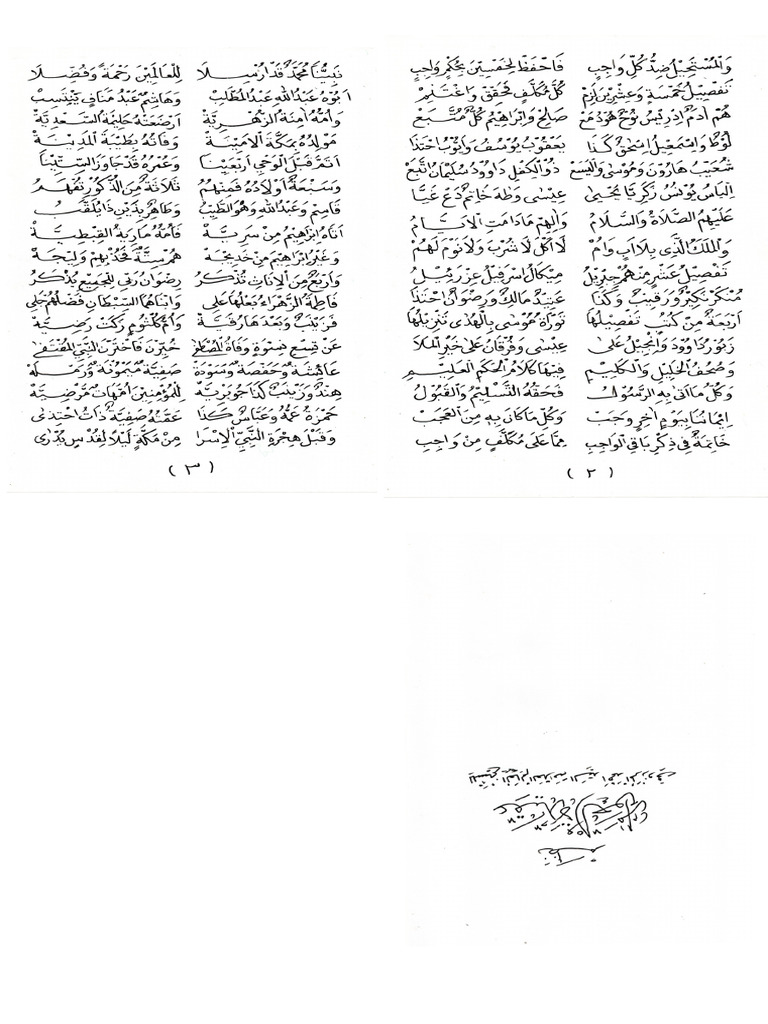 وَالْمُسْتَحِيْلُ ضِدُّ كُلِّ وَاجِبِ فَاحْفَظْ لِخَمْسِيْنَ بِحُكْمٍ وَاجِبِ
تَفْصِيْلُ خَمْسَةٍ وَعِشْرِيْنَ لَزِمْ كُلَّ مُكَلَّفٍ فَحَقِّقْ وَاغْتَنِمْ
هُمْ اٰدَمٌ اِدْرِيْسُ نُوْحٌ هُوْدُ مَعْ صَالِحْ وَاِبْرَاهِيْمُ كُلٌّ مُتَّبَعْ
لُوْطٌ وَاِسْمَعِيْلُ اِسْحٰقُ كَذَا يَعْقُوْبُ يُوْسُفُ وَاَيُّوْبُ احْتَذَا
شُعَيْبُ هَارُوْنُ وَمُوْسٰى وَالْيَسَعْ ذُو الْكِفْلِ دَاوُوْدُ سُلَيْمَانُ اتَّبَعْ
اِلْيَاسُ يُوْنُسْ زَكَرِيَّا يَحْيٰى عِيْسٰى وَطٰهَ خَاتِمٌ دَعْ غَيَّا
عَلَيْهِمُ الصَّلَاةُ وَالسَّلَامُ وَاٰلِهِمْ مَا دَامَتِ الْاَيَّامُ
وَالْمَلَكُ الَّذِيْ بِلَا اَبٍ وَاُمْ لَا اَكْلَ لَا شُرْبَ وَلَا نَوْمَ لَهُمْ
تَفْصِيْلُ عَشْرٍ مِنْهُمْ جِبْرِيْلُ مِيْكَالُ اِسْرَافِيْلُ عِزْرَئِيْلُ
مُنْكَرْ نَكِيْرٌ وَرَقِيْبٌ وَكَذَا عَتِيْدٌ مَالِكٌ وَرِضْوَانُ احْتَذَا
اَرْبَعَةٌ مِنْ كُتُبٍ تَفْصِيْلُهَا تَوْرَاةُ مُوْسٰى بِالْهُدٰى تَنْزِيْلُهَا
زَبُوْرُ دَاوُوْدَ وَاِنْجِيْلُ عَلٰى عِيْسٰى وَفُرْقَانُ عَلٰى خَيْرِ الْمَلَا
وَصُحُفُ الْخَلِيْلِ وَالْكَلِيْمِ فِيْهَا كَلَامُ الْحَكَمِ الْعَلِيْمِ
وَكُلُّ مَا اَتٰى بِهِ الرَّسُوْلُ فَحَقُّهُ التَّسْلِيْمُ وَالْقَبُوْلُ
اِيْمَانُنَا بِيَوْمِ اٰخِرٍ وَجَبْ وَكُلِّ مَا كَانَ بِهِ مِنَ الْعَجَبْ
خَاتِمَةٌ فِيْ ذِكْرِ بَاقِي الْوَاجِبِ مِمَّا عَلٰى مُكَلَّفٍ مِنْ وَاجِبِ
(٢)
نَبِيُّنَا مُحَمَّدٌ قَدْ اُرْسِلَا لِلْعَالَمِيْنَ رَحْمَةً وَفُضِّلَا
اَبُوْهُ عَبْدُ اللهِ عَبْدُ الْمُطَّلِبْ وَهَاشِمٌ عَبْدُ مَنَافٍ يَنْتَسِبْ
وَاُمُّهُ اٰمِنَةُ الزُّهْرِيَّةْ اَرْضَعَتْهُ حَلِيْمَةُ السَّعْدِيَّةْ
مَوْلِدُهُ بِمَكَّةَ الْاَمِيْنَةْ وَفَاتُهُ بِطَيْبَةَ الْمَدِيْنَةْ
اَتَمَّ قَبْلَ الْوَحْيِ اَرْبَعِيْنَا وَعُمْرُهُ قَدْ جَاوَزَ السِّتِّيْنَا
وَسَبْعَةٌ اَوْلَادُهُ فَمِنْهُمُ ثَلَاثَةٌ مِنَ الذُّكُوْرِ تُفْهَمُ
قَاسِمْ وَعَبْدُ اللهِ وَهُوَ الطَّيِّبُ وَطَاهِرٌ بِذَيْنِ ذَا يُلَقَّبُ
اَتَاهُ اِبْرَاهِيْمُ مِنْ سَرِيَّةْ فَاُمُّهُ مَارِيَةُ الْقِبْطِيَّةْ
وَغَيْرُ اِبْرَاهِيْمَ مِنْ خَدِيْجَةْ هُمْ سِتَّةٌ فَخُذْ بِهِمْ وَلِيْجَةْ
وَاَرْبَعٌ مِنَ الْاِنَاثِ تُذْكَرُ رِضْوَانُ رَبِّيْ لِلْجَمِيْعِ يُذْكَرُ
فَاطِمَةُ الزَّهْرَاءُ بَعْلُهَا عَلِيْ وَابْنَاهُمَا السِّبْطَانِ فَضْلُهُمْ جَلِيْ
فَزَيْنَبٌ وَبَعْدَهَا رُقَيَّةْ وَاُمُّ كُلْثُوْمٍ زَكَتْ رَضِيَّةْ
عَنْ تِسْعِ نِسْوَةٍ وَفَاةُ الْمُصْطَفٰى خُيِّرْنَ فَاخْتَرْنَ النَّبِيَّ الْمُقْتَفٰى
عَائِشَةٌ وَحَفْصَةٌ وَسَوْدَةْ صَفِيَّةٌ مَيْمُوْنَةٌ وَرَمْلَةْ
هِنْدٌ وَزَيْنَبٌ كَذَا جُوَيْرِيَةْ لِلْمُؤْمِنِيْنَ اُمَّهَاتٌ مَرْضِيَّةْ
حَمْزَةُ عَمُّهُ وَعَبَّاسٌ كَذَا عَمَّتُهُ صَفِيَّةٌ ذَاتُ احْتِذَى
وَقَبْلَ هِجْرَةِ النَّبِيِّ الْاِسْرَا مِنْ مَكَّةٍ لَيْلًا لِقُدْسٍ يُدْرٰى
(٣)
للشيخ العالم العلامة السيد احمد المرزوقي